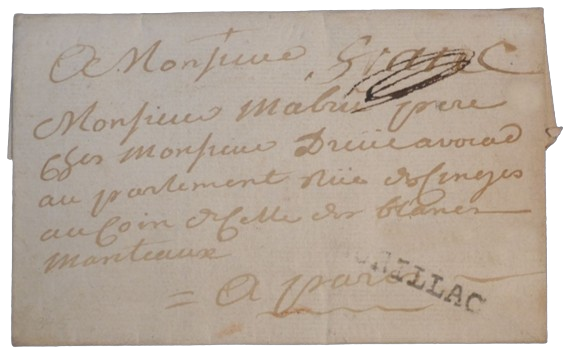 A Monsieur
Monsieur Mabru pere
Ches Monsieur Druie avocad
au parlement Rüe des Singes
au Coin de Celle des blancs
manteaux
= A paris
AURILLAC